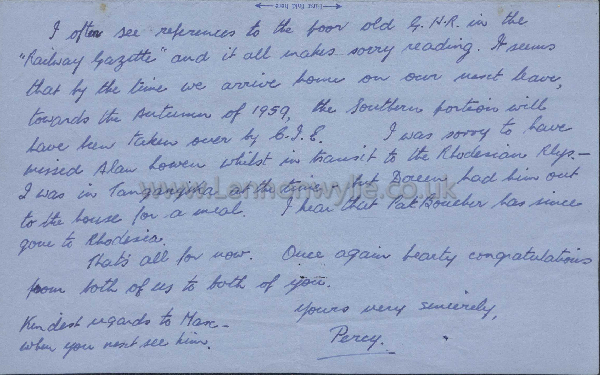 First fold here
I often see references to the poor old G.N.R. in the
"Railway Gazette" and it all makes sorry reading. It seems
that by the time we arrive home on our next leave,
towards the Autumn of 1959, the Southern portion will
have been taken over by C.I.E. I was sorry to have
missed Alan whilst in transit to the Rhodesian Rlys. –
I was in Tanganyika at the time – but Doreen had him out
to the house for a meal. I hear that Pat has since
gone to Rhodesia.
That's all for now. Once again hearty congratulations
from both of us to both of you.
Yours very sincerely,
Percy.
Kindest regards to Max –
when you next see him.